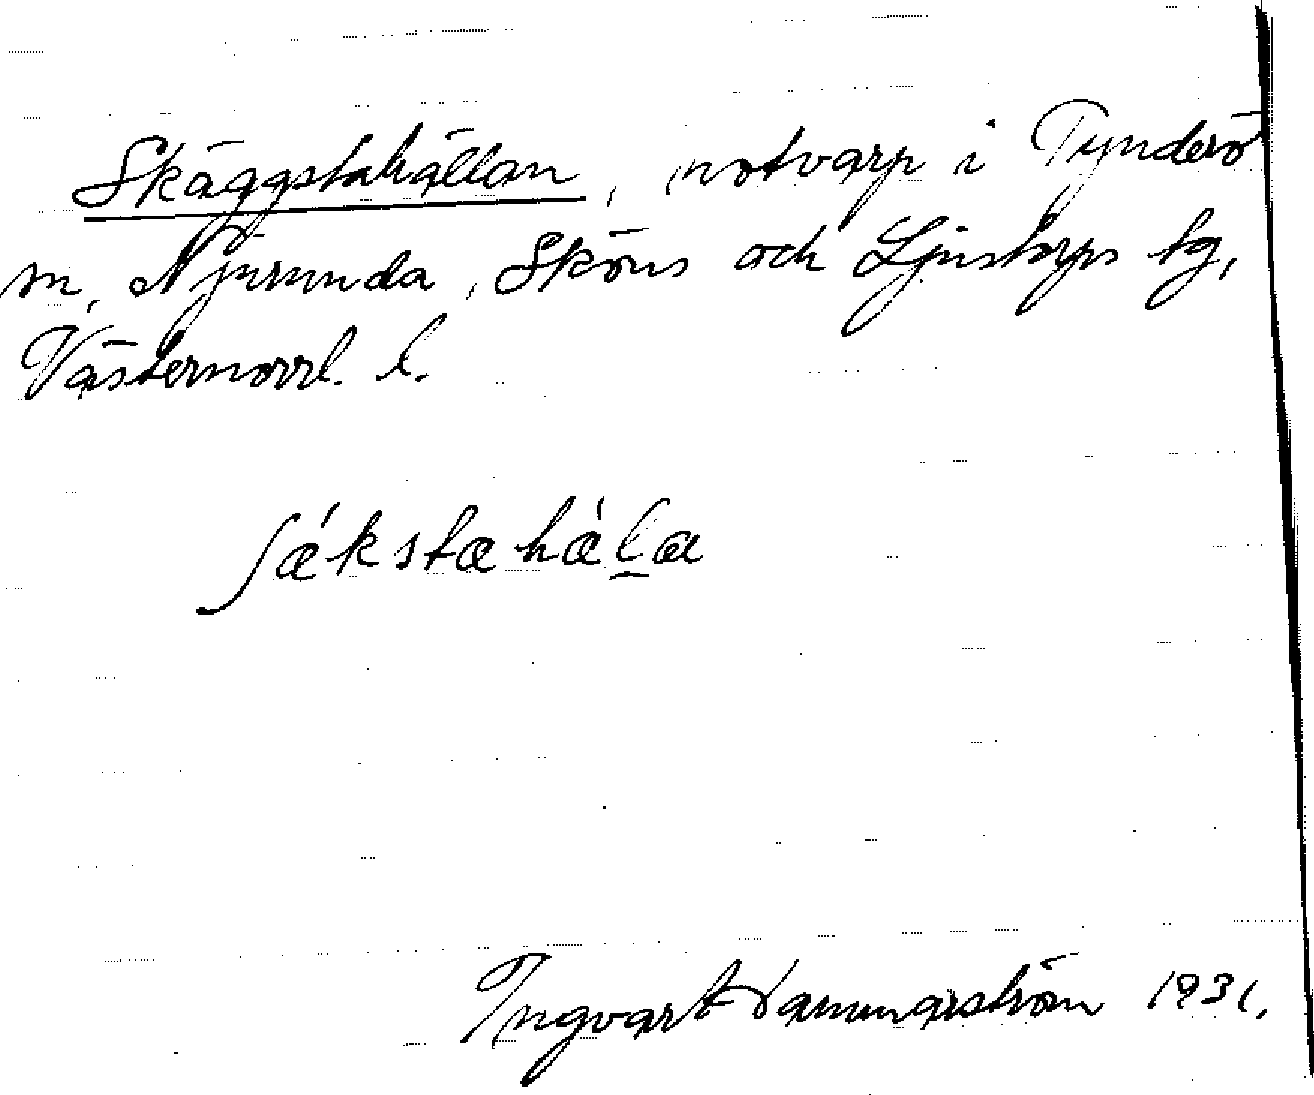 Skäggstahällan, notvarp i Tynderö
sn, Njurunda, Sköns och Ljustorps tg,
Västernorrl. l.
ʃǽkstæhǽl̠a
Ingvart 1931.